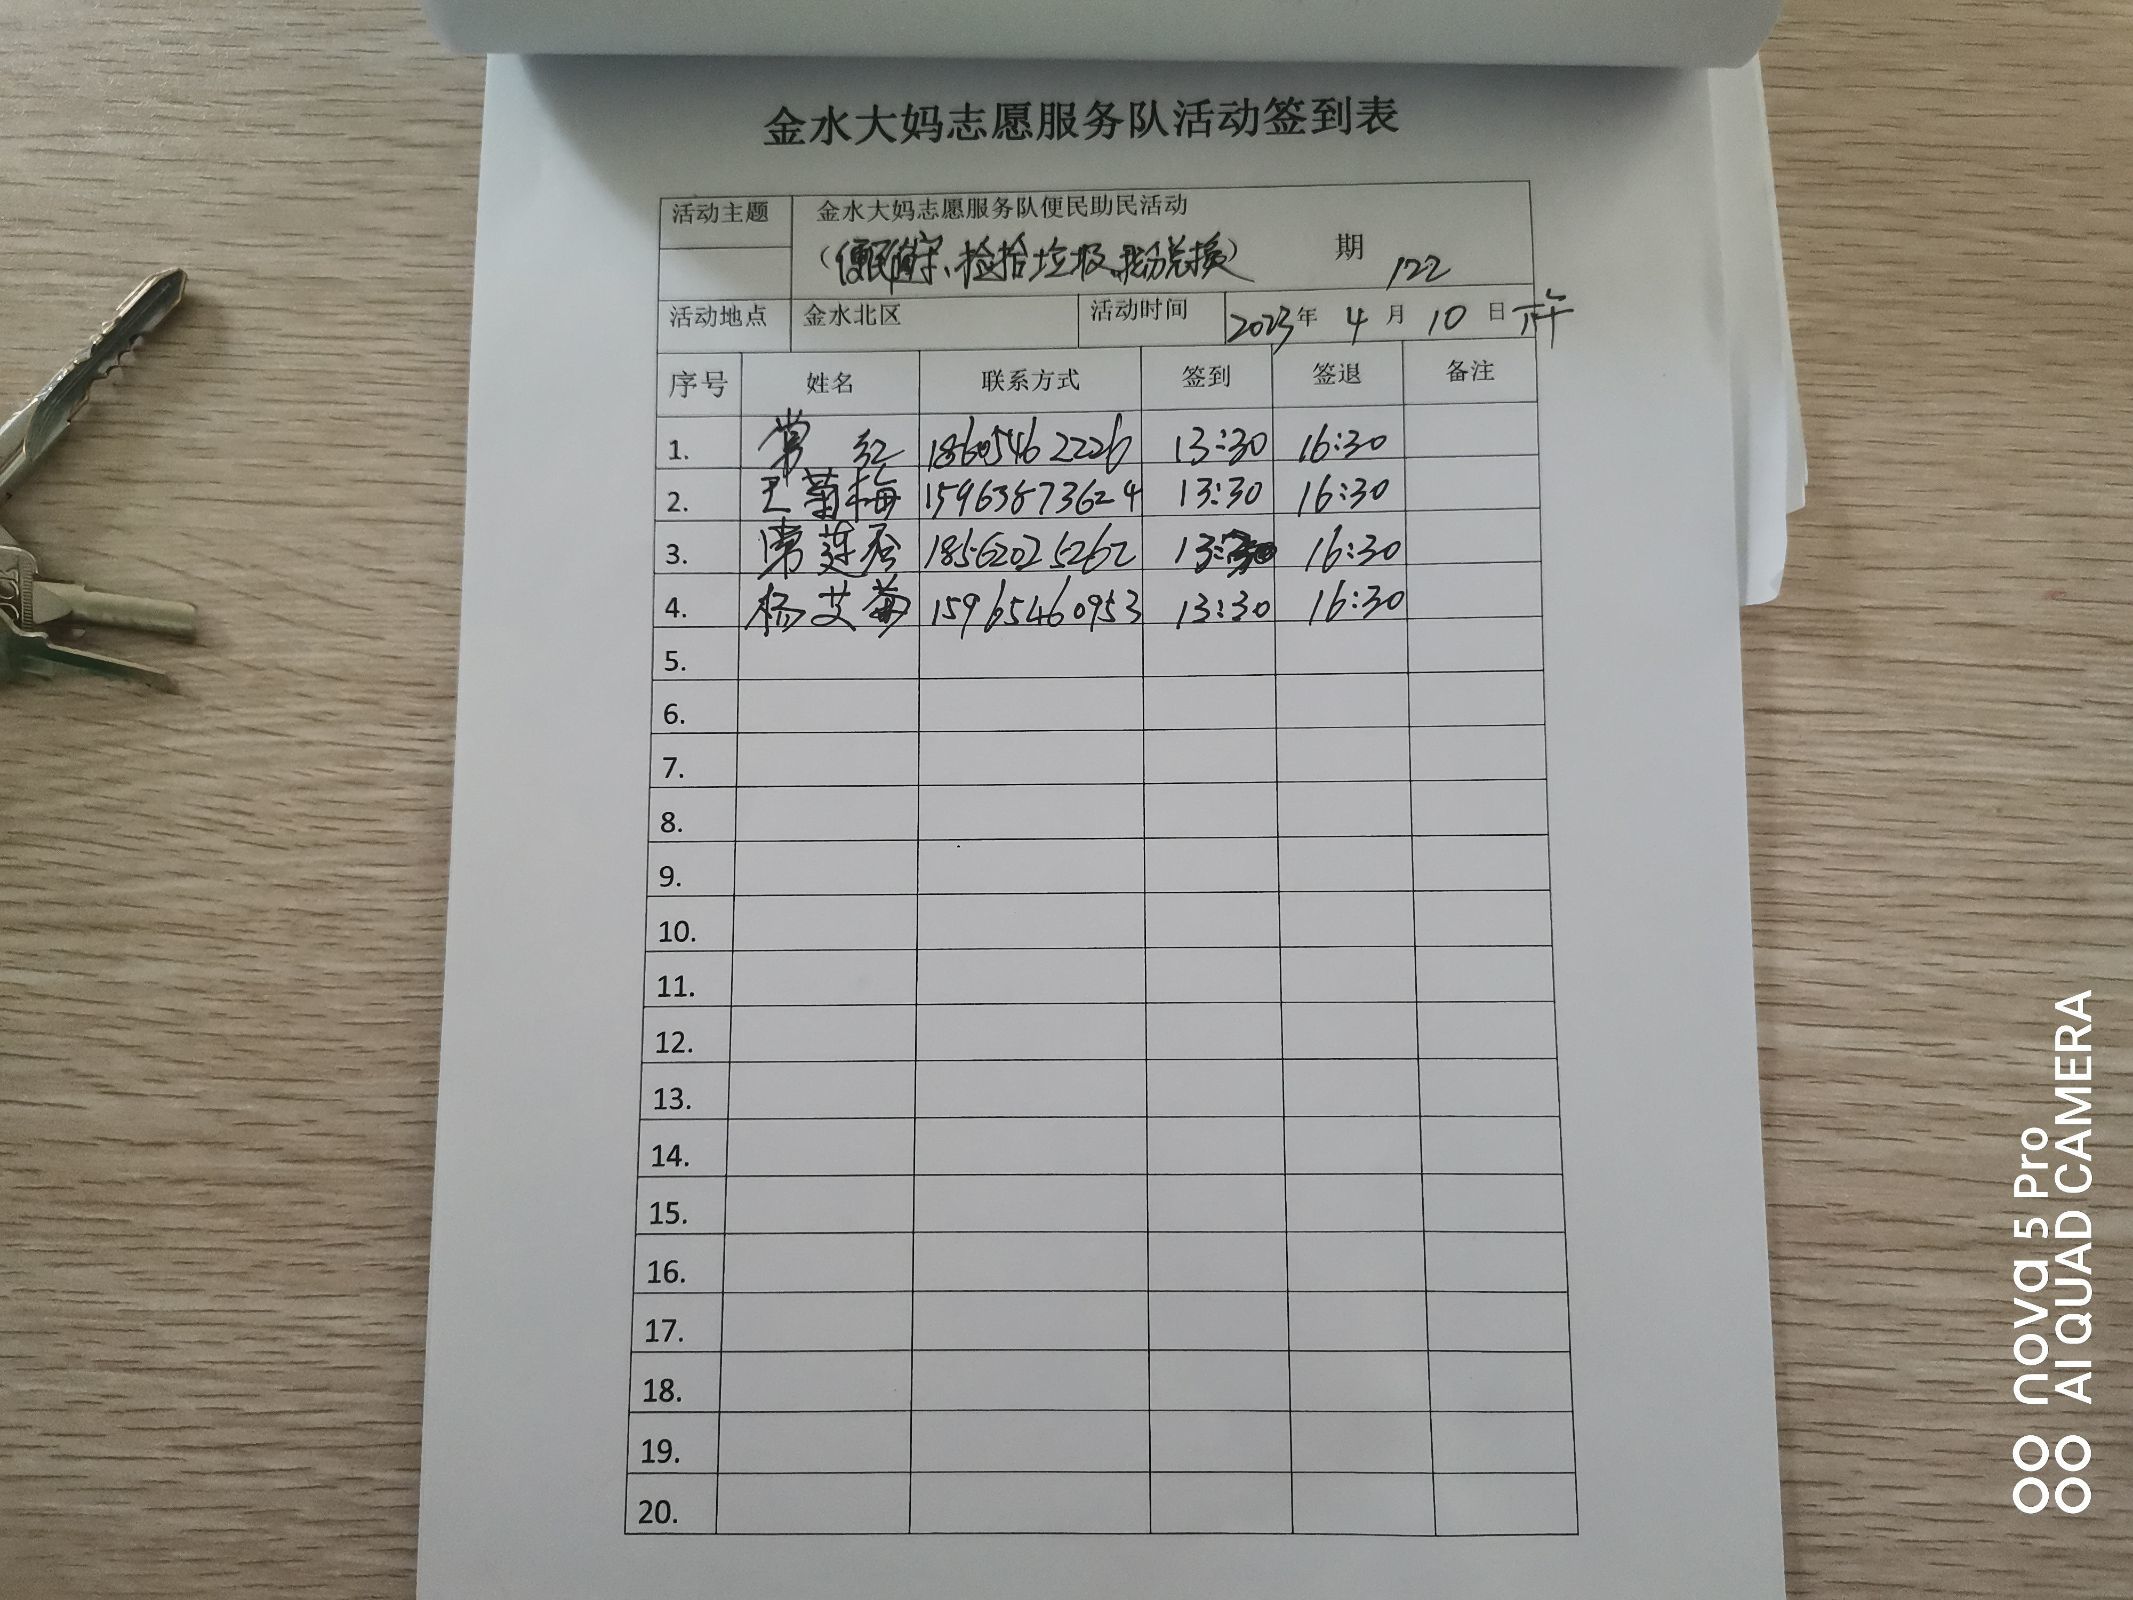 金水大妈志愿服务队活动签到表
活动主题 金水大妈志愿服务队便民助民活动
(便民 、捡拾垃圾、积分兑换) 期 122
活动地点 金水北区 活动时间 2023年 4月 10日 下午
序号 姓名 联系方式 签到 签退 备注
1. 常红 18605462226 13:30 16:30
2. 王菊梅 15963873624 13:30 16:30
3. 常莲香 18562025262 13:30 16:30
4. 杨艾菊 15965460953 13:30 16:30
5.
6.
7.
8.
9.
10.
11.
12.
13.
14.
15.
16.
17.
18.
19.
20.
nova 5 Pro
AI QUAD CAMERA